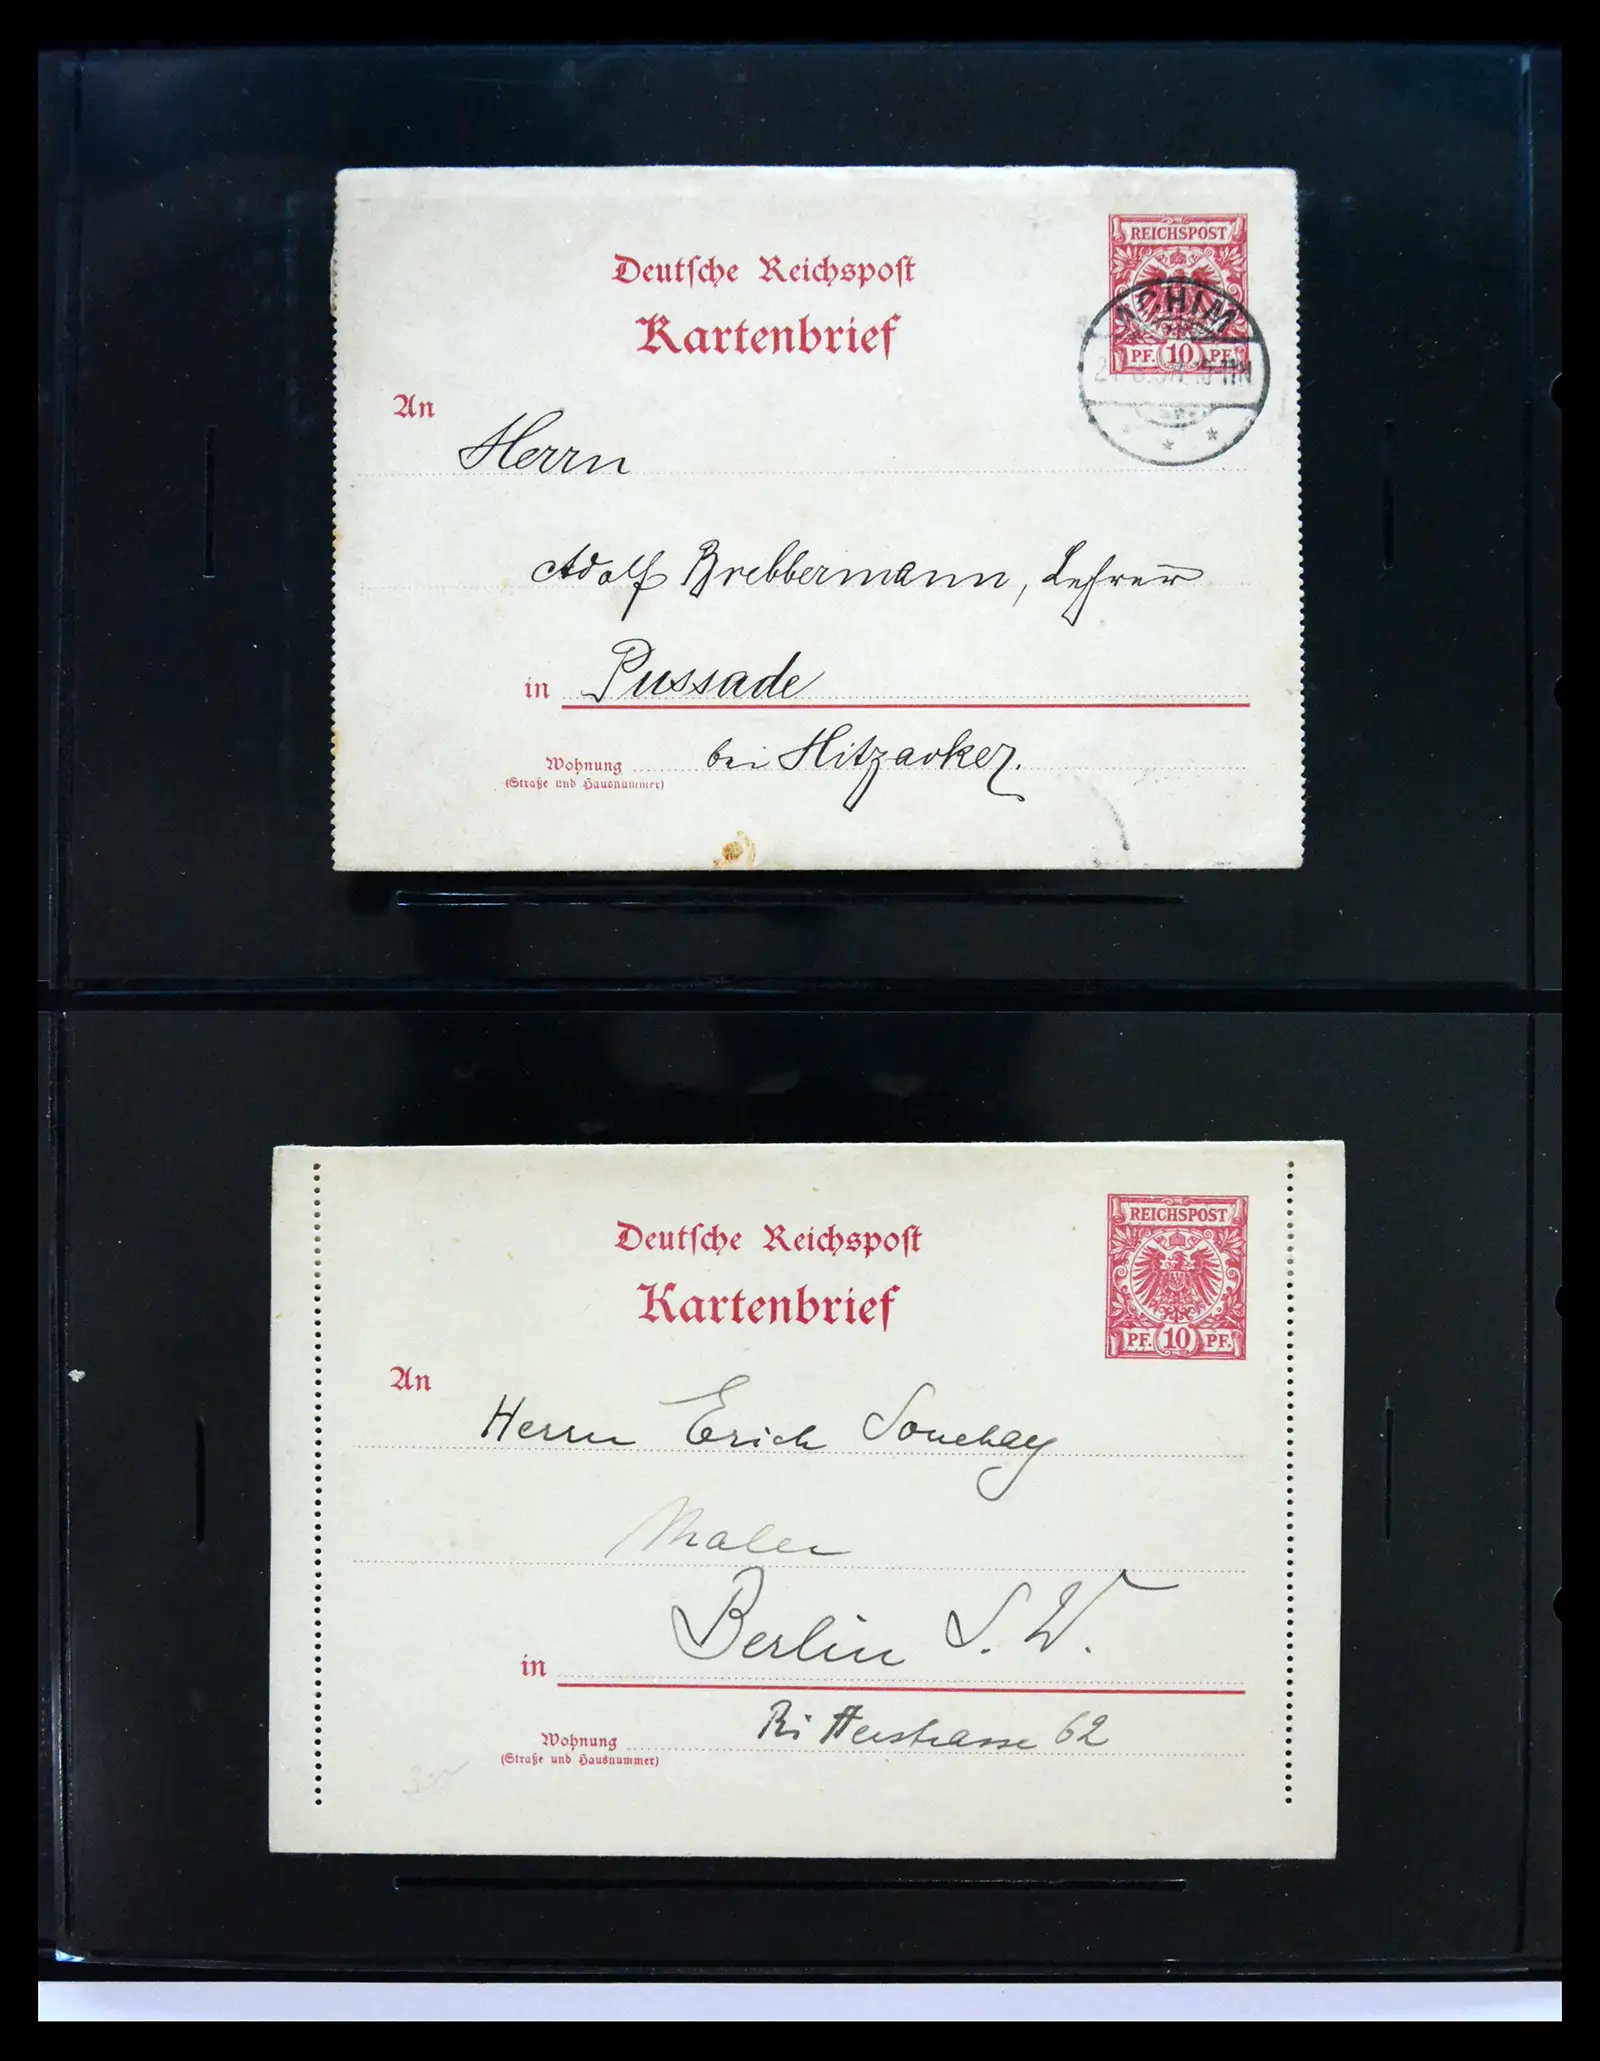 Deutsche Reichspost
Kartenbrief
REICHSPOST
PF. 10 PF.
ACHIM
An
Herrn
Adolf Brebbermann, Lehrer
in Pussade
Wohnung bei Hitzacker.
(Straße und Hausnummer)
Deutsche Reichspost
Kartenbrief
REICHSPOST
PF. 10 PF.
An
Herrn Erich Souchay
Maler
in Berlin S. W.
Wohnung Ritterstrasse 62
(Straße und Hausnummer)